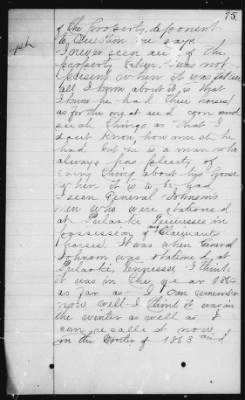 75
of the property, deponent
to Question he says
I never seen any of the
property taken. I was not
present when it was taken
all I know about it, is that
I know he had these horses
as for the
such things as that I
don't know how much he
had but he is a man who
always has plenty of
every thing about his house
when it is to be had
I seen General Johnson's
men who were stationed
at Pulaski Tennessee in
possession of Claimants
horses. It was when General
Johnson was stationed at
Pulaski, Tennessee, I think
it was in the year 186
as far as I can remember
now well I think it was in
the winter as well as I
can recall it now,
in the Winter of 1863 and